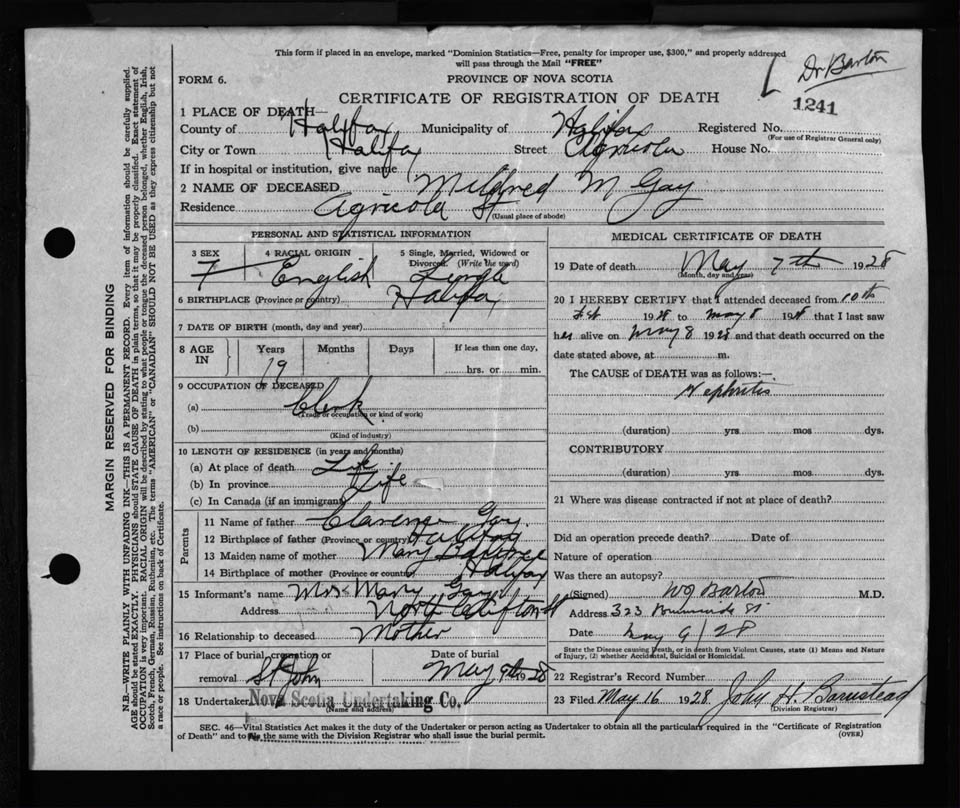 This form if placed in an envelope, marked "Dominion Statistics—Free, penalty for improper use, $300," and properly addressed
will pass through the Mail "FREE"
Dr Barton
FORM 6.
PROVINCE OF NOVA SCOTIA
1241
CERTIFICATE OF REGISTRATION OF DEATH
1 PLACE OF DEATH—
County of Halifax Municipality of Halifax Registered No.
(For use of Registrar General only)
City or Town Halifax Street Agricola House No.
If in hospital or institution, give name
2 NAME OF DECEASED Mildred M Gay
Residence Agricola St
(Usual place of abode)
PERSONAL AND STATISTICAL INFORMATION
3 SEX 4 RACIAL ORIGIN 5 Single, Married, Widowed or
Divorced. (Write the word)
F English Single
6 BIRTHPLACE (Province or country) Halifax
7 DATE OF BIRTH (month, day and year)
8 AGE IN Years Months Days If less than one day,
19 hrs. or min.
9 OCCUPATION OF DECEASED
(a) Clerk
(Trade or occupation or kind of work)
(b)
(Kind of industry)
10 LENGTH OF RESIDENCE (in years and months)
(a) At place of death Life
(b) In province Life
(c) In Canada (if an immigrant)
Parents
11 Name of father Clarence Gay
12 Birthplace of father (Province or country) Halifax
13 Maiden name of mother Mary
14 Birthplace of mother (Province or country) Halifax
15 Informant's name Mrs Mary Gay
Address Clifton St
16 Relationship to deceased Mother
17 Place of burial, cremation or Date of burial
removal St John May 9th 1928
18 Undertaker Nova Scotia Undertaking Co.
(Name and address)
MEDICAL CERTIFICATE OF DEATH
19 Date of death May 7th 1928
(Month, day and year)
20 I HEREBY CERTIFY that I attended deceased from 10th
Feb 1928 to May 8 1928 that I last saw
her alive on May 8 1928 and that death occurred on the
date stated above, at m.
The CAUSE of DEATH was as follows:—
Nephritis
(duration) yrs mos dys.
CONTRIBUTORY
(duration) yrs mos dys.
21 Where was disease contracted if not at place of death?
Did an operation precede death? Date of
Nature of operation
Was there an autopsy?
(Signed) W J Barton M.D.
Address 323 St.
Date May 9/28
State the Disease causing Death, or in death from Violent Causes, state (1) Means and Nature
of Injury, (2) whether Accidental, Suicidal or Homicidal.
22 Registrar's Record Number
23 Filed May 16 1928 John H. Barnstead
(Division Registrar)
SEC. 46—Vital Statistics Act makes it the duty of the Undertaker or person acting as Undertaker to obtain all the particulars required in the "Certificate of Registration
of Death" and to file the same with the Division Registrar who shall issue the burial permit.
(OVER)
MARGIN RESERVED FOR BINDING
N.B.—WRITE PLAINLY WITH UNFADING INK—THIS IS A PERMANENT RECORD. Every item of information should be carefully supplied.
AGE should be stated EXACTLY. PHYSICIANS should STATE CAUSE OF DEATH in plain terms, so that it may be properly classified. Exact statement of
OCCUPATION is very important. RACIAL ORIGIN will be described by stating to what people or tongue the deceased person belonged, whether English, Irish,
Scotch, French, German, Russian, Ruthenian, etc. The terms "AMERICAN" or "CANADIAN" SHOULD NOT BE USED as they express citizenship but not
a race or people. See instructions on back of Certificate.